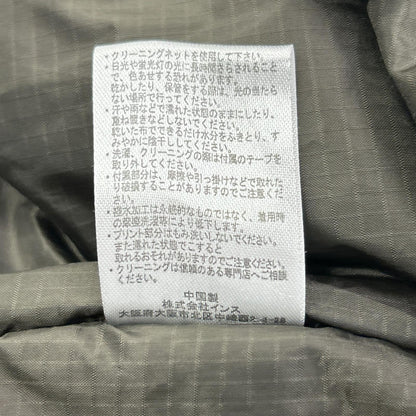 ・クリーニングネットを使用して下さい。
・日光や蛍光灯の光に長時間さらされることで、色あせする恐れがあります。
乾かしたり、保管をする際は、光の当たらない場所で行ってください。
・汗や雨などで濡れた状態のままにしたり、重ね置きなどしないでください。
乾いた布でできるだけ水分をふきとり、すみやかに陰干ししてください。
・洗濯、クリーニングの際は付属のテープを取り外してください。
・付属部分は、摩擦や引っ掛けなどで取れたり破損することがありますのでご注意ください。
・撥水加工は永続的なものではなく、着用時の
により低下します。
・プリント部分はもみ洗いしないでください。
また濡れた状態でこすると
おそれがありますのでご注意ください。
・クリーニングは信頼のある専門店へご相談ください。
中国製
株式会社インス
大阪府大阪市北区中崎西2-4-28